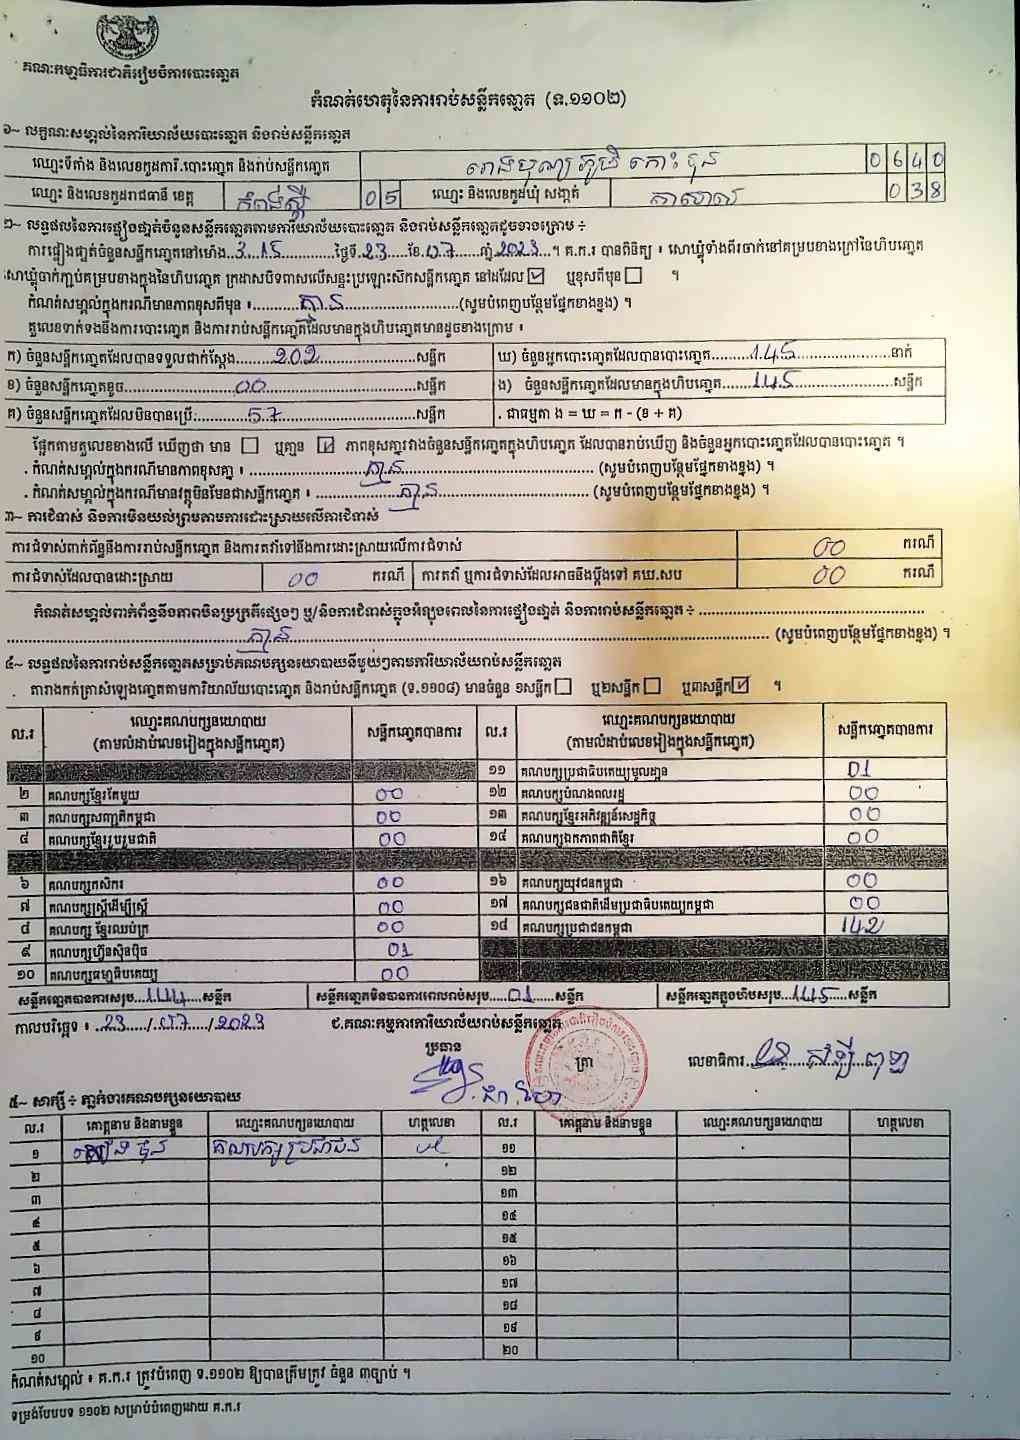 គណៈកម្មាធិការជាតិរៀបចំការបោះឆ្នោត
កំណត់ហេតុនៃការរាប់សន្លឹកឆ្នោត (ទ.១១០២)
១~ លក្ខណៈសម្គាល់នៃការិយាល័យបោះឆ្នោត និងរាប់សន្លឹកឆ្នោត
ឈ្មោះទីតាំង និងលេខកូដការិ.បោះឆ្នោត និងរាប់សន្លឹកឆ្នោត រោងបុណ្យភូមិ កោះ ប៉ុន 0640
ឈ្មោះ និងលេខកូដរាជធានី ខេត្ត កំពង់ស្ពឺ 05 ឈ្មោះ និងលេខកូដឃុំ សង្កាត់ 038
២~ លទ្ធផលនៃការផ្ទៀងផ្ទាត់ចំនួនសន្លឹកឆ្នោតតាមការិយាល័យបោះឆ្នោត និងរាប់សន្លឹកឆ្នោតដូចខាងក្រោម ÷
ការផ្ទៀងផ្ទាត់ចំនួនសន្លឹកឆ្នោតនៅម៉ោង 3:15 ថ្ងៃទី 23 ខែ 07 ឆ្នាំ 2023 ។ គ.ក.រ បានពិនិត្យ ៖ សោឃ្មុំទាំងពីរចាក់នៅគម្របខាងក្រៅនៃហិបឆ្នោត
សោឃ្មុំចាក់ភ្ជាប់គម្របខាងក្នុងនៃហិបឆ្នោត ក្រដាសបិទពាសលើសន្ទះប្រឡោះស៊កសន្លឹកឆ្នោត នៅដដែល ☑ ឬខុសពីមុន ☐ ។
កំណត់សម្គាល់ក្នុងករណីមានភាពខុសពីមុន ៖ គ្មាន (សូមបំពេញបន្ថែមផ្នែកខាងខ្នង) ។
តួលេខទាក់ទងនឹងការបោះឆ្នោត និងការរាប់សន្លឹកឆ្នោតដែលមានក្នុងហិបឆ្នោតមានដូចខាងក្រោម ៖
ក) ចំនួនសន្លឹកឆ្នោតដែលបានទទួលជាក់ស្តែង 202 សន្លឹក ឃ) ចំនួនអ្នកបោះឆ្នោតដែលបានបោះឆ្នោត 145 នាក់
ខ) ចំនួនសន្លឹកឆ្នោតខូច 00 សន្លឹក ង) ចំនួនសន្លឹកឆ្នោតដែលមានក្នុងហិបឆ្នោត 145 សន្លឹក
គ) ចំនួនសន្លឹកឆ្នោតដែលមិនបានប្រើ: 57 សន្លឹក . ជាធម្មតា ង = ឃ = ក - (ខ + គ)
ផ្អែកតាមតួលេខខាងលើ ឃើញថា មាន ☐ ឬគ្មាន ☑ ភាពខុសគ្នារវាងចំនួនសន្លឹកឆ្នោតក្នុងហិបឆ្នោត ដែលបានរាប់ឃើញ និងចំនួនអ្នកបោះឆ្នោតដែលបានបោះឆ្នោត ។
. កំណត់សម្គាល់ក្នុងករណីមានភាពខុសគ្នា ៖ គ្មាន (សូមបំពេញបន្ថែមផ្នែកខាងខ្នង) ។
. កំណត់សម្គាល់ក្នុងករណីមានវត្ថុមិនមែនជាសន្លឹកឆ្នោត ៖ គ្មាន (សូមបំពេញបន្ថែមផ្នែកខាងខ្នង) ។
៣~ ការជំទាស់ និងការមិនយល់ព្រមតាមការដោះស្រាយលើការជំទាស់
ការជំទាស់ពាក់ព័ន្ធនឹងការរាប់សន្លឹកឆ្នោត និងការតវ៉ាទៅនឹងការដោះស្រាយលើការជំទាស់ 00 ករណី
ការជំទាស់ដែលបានដោះស្រាយ 00 ករណី ការតវ៉ា ឬការជំទាស់ដែលអាចនឹងប្តឹងទៅ គឃ.សប 00 ករណី
កំណត់សម្គាល់ពាក់ព័ន្ធនឹងភាពមិនប្រក្រតីផ្សេងៗ ឬ/និងការជំទាស់ក្នុងអំឡុងពេលនៃការផ្ទៀងផ្ទាត់ និងការរាប់សន្លឹកឆ្នោត ÷
គ្មាន (សូមបំពេញបន្ថែមផ្នែកខាងខ្នង) ។
៤~ លទ្ធផលនៃការរាប់សន្លឹកឆ្នោតសម្រាប់គណបក្សនយោបាយនីមួយៗតាមការិយាល័យរាប់សន្លឹកឆ្នោត
តារាងកត់ត្រាសំឡេងឆ្នោតតាមការិយាល័យបោះឆ្នោត និងរាប់សន្លឹកឆ្នោត (ទ.១១០៨) មានចំនួន ១សន្លឹក ☐ ឬ២សន្លឹក ☐ ឬ៣សន្លឹក ☑ ។
ល.រ ឈ្មោះគណបក្សនយោបាយ (តាមលំដាប់លេខរៀងក្នុងសន្លឹកឆ្នោត) សន្លឹកឆ្នោតបានការ ល.រ ឈ្មោះគណបក្សនយោបាយ (តាមលំដាប់លេខរៀងក្នុងសន្លឹកឆ្នោត) សន្លឹកឆ្នោតបានការ
១១ គណបក្សប្រជាធិបតេយ្យមូលដ្ឋាន 01
២ គណបក្សខ្មែរតែមួយ 00 ១២ គណបក្សបំណងពលរដ្ឋ 00
៣ គណបក្សសញ្ជាតិកម្ពុជា 00 ១៣ គណបក្សខ្មែរអភិវឌ្ឍន៍សេដ្ឋកិច្ច 00
៤ គណបក្សខ្មែររួបរួមជាតិ 00 ១៤ គណបក្សឯកភាពជាតិខ្មែរ 00
៦ គណបក្សកសិករ 00 ១៦ គណបក្សយុវជនកម្ពុជា 00
៧ គណបក្សស្ត្រីដើម្បីស្ត្រី 00 ១៧ គណបក្សជនជាតិដើមប្រជាធិបតេយ្យកម្ពុជា 00
៨ គណបក្ស ខ្មែរឈប់ក្រ 00 ១៨ គណបក្សប្រជាជនកម្ពុជា 142
៩ គណបក្សហ្វ៊ុនស៊ិនប៉ិច 01
១០ គណបក្សធម្មាធិបតេយ្យ 00
សន្លឹកឆ្នោតបានការសរុប 144 សន្លឹក សន្លឹកឆ្នោតមិនបានការពេលរាប់សរុប 01 សន្លឹក សន្លឹកឆ្នោតក្នុងហិបសរុប 145 សន្លឹក
កាលបរិច្ឆេទ ៖ 23/07/2023 ជ.គណៈកម្មការការិយាល័យរាប់សន្លឹកឆ្នោត
ប្រធាន ត្រា លេខាធិការ
៥~ សាក្សី ÷ ភ្នាក់ងារគណបក្សនយោបាយ
ល.រ គោត្តនាម និងនាមខ្លួន ឈ្មោះគណបក្សនយោបាយ ហត្ថលេខា ល.រ គោត្តនាម និងនាមខ្លួន ឈ្មោះគណបក្សនយោបាយ ហត្ថលេខា
១ គណបក្សប្រជាជន ១១
២ ១២
៣ ១៣
៤ ១៤
៥ ១៥
៦ ១៦
៧ ១៧
៨ ១៨
៩ ១៩
១០ ២០
កំណត់សម្គាល់ ៖ គ.ក.រ ត្រូវបំពេញ ទ.១១០២ ឱ្យបានត្រឹមត្រូវ ចំនួន ៣ច្បាប់ ។
ទម្រង់បែបបទ ១១០២ សម្រាប់បំពេញដោយ គ.ក.រ